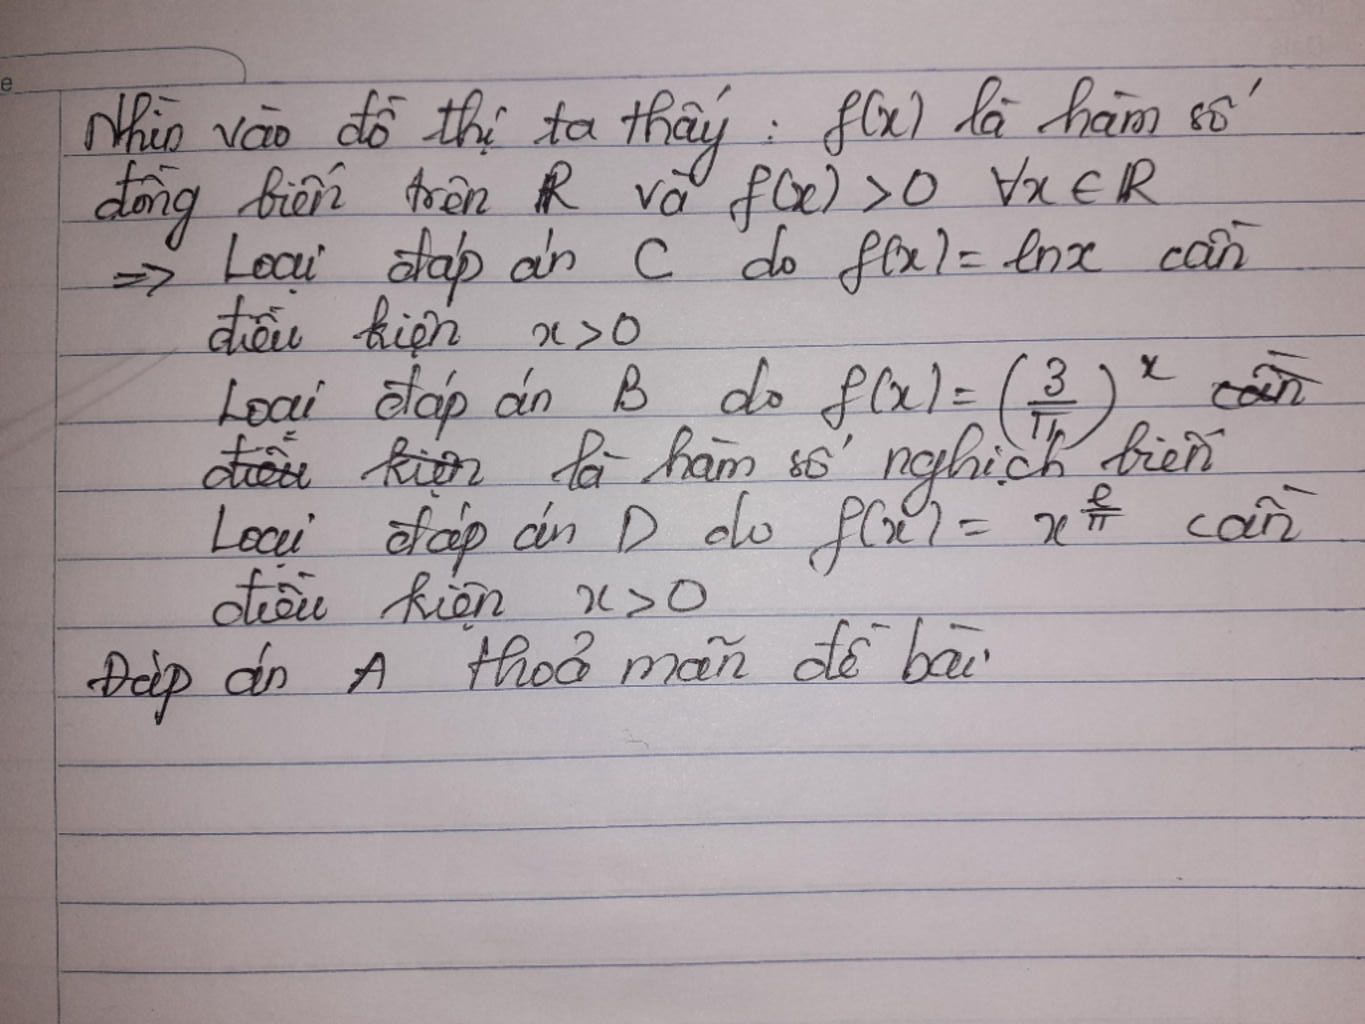 e
Nhìn vào đồ thị ta thấy : f(x) là hàm số
đồng biến trên R và f(x) > 0 ∀x ∈ R
=> Loại đáp án C do f(x) = lnx cần
điều kiện x > 0
Loại đáp án B do f(x) = (3/π)^x cần
điều kiện là hàm số nghịch biến
Loại đáp án D do f(x) = x^(e/π) cần
điều kiện x > 0
Đáp án A thoả mãn đề bài